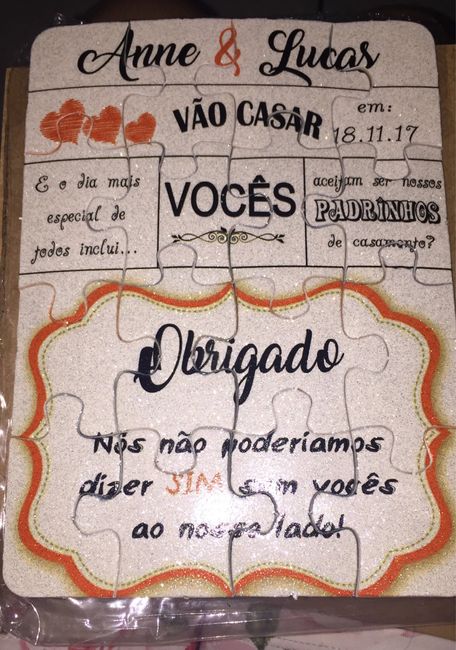 Anne & Lucas
VÃO CASAR
em:
18.11.17
E o dia mais
especial de
todos inclui...
VOCÊS
aceitam ser nossos
PADRINHOS
de casamento?
Obrigado
Nós não poderiamos
dizer SIM sem vocês
ao nosso lado!